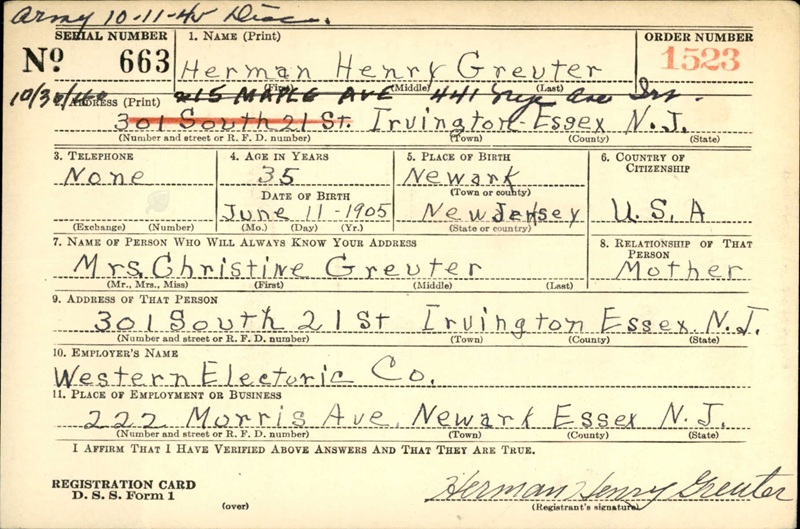 Army 10-11-45 Disc.
SERIAL NUMBER 1. NAME (Print) ORDER NUMBER
No 663 Herman Henry Greuter 1523
(First) (Middle) (Last)
10/30/40 215 MAPLE AVE 441 Nye Ave Irv.
ADDRESS (Print)
301 South 21 St. Irvington Essex N.J.
(Number and street or R. F. D. number) (Town) (County) (State)
3. TELEPHONE 4. AGE IN YEARS 5. PLACE OF BIRTH 6. COUNTRY OF CITIZENSHIP
None 35 Newark
(Town or county)
DATE OF BIRTH
June 11-1905 New Jersey U.S.A
(Exchange) (Number) (Mo.) (Day) (Yr.) (State or country)
7. NAME OF PERSON WHO WILL ALWAYS KNOW YOUR ADDRESS 8. RELATIONSHIP OF THAT PERSON
Mrs. Christine Greuter Mother
(Mr., Mrs., Miss) (First) (Middle) (Last)
9. ADDRESS OF THAT PERSON
301 South 21 St Irvington Essex. N.J.
(Number and street or R. F. D. number) (Town) (County) (State)
10. EMPLOYER'S NAME
Western Electuric Co.
11. PLACE OF EMPLOYMENT OR BUSINESS
222 Morris Ave. Newark Essex N.J.
(Number and street or R. F. D. number) (Town) (County) (State)
I AFFIRM THAT I HAVE VERIFIED ABOVE ANSWERS AND THAT THEY ARE TRUE.
REGISTRATION CARD
D. S. S. Form 1
(over)
Herman Henry Greuter
(Registrant's signature)